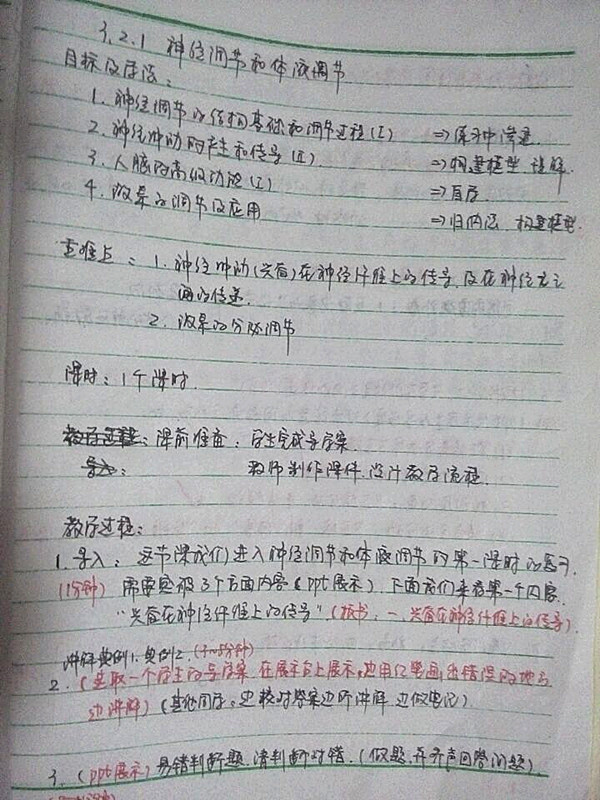 3.2.1 神经调节和体液调节
目标及学法：
1. 神经调节的结构基础和调节过程(Ⅱ) ⇒复习中渗透.
2. 神经冲动的产生和传导(Ⅱ). ⇒构建模型 理解.
3. 人脑的高级功能(Ⅰ) ⇒自学.
4. 激素的调节及应用 ⇒归纳法 构建模型.
重难点：1. 神经冲动(兴奋)在神经纤维上的传导，及在神经元之
间的传递.
2. 激素的分泌调节
课时：1个课时.
课前准备：学生完成导学案.
导入： 教师制作课件，设计教学流程.
教学过程：
1. 导入：这节课我们进入神经调节和体液调节的第一课时的复习.
(1分钟) 需要突破3个方面内容(ppt展示). 下面我们来看第一个内容.
“兴奋在神经纤维上的传导”(板书：一、兴奋在神经纤维上的传导).
讲解典例1.典例2.
2. (选取一个学生的导学案 在展示台上展示，边用红笔画出错误的地方
边讲解) (其他同学：边核对学案边听讲解 边做笔记)
3. (ppt展示) 易错判断题. 请判断对错. (做题，再齐声回答问题)